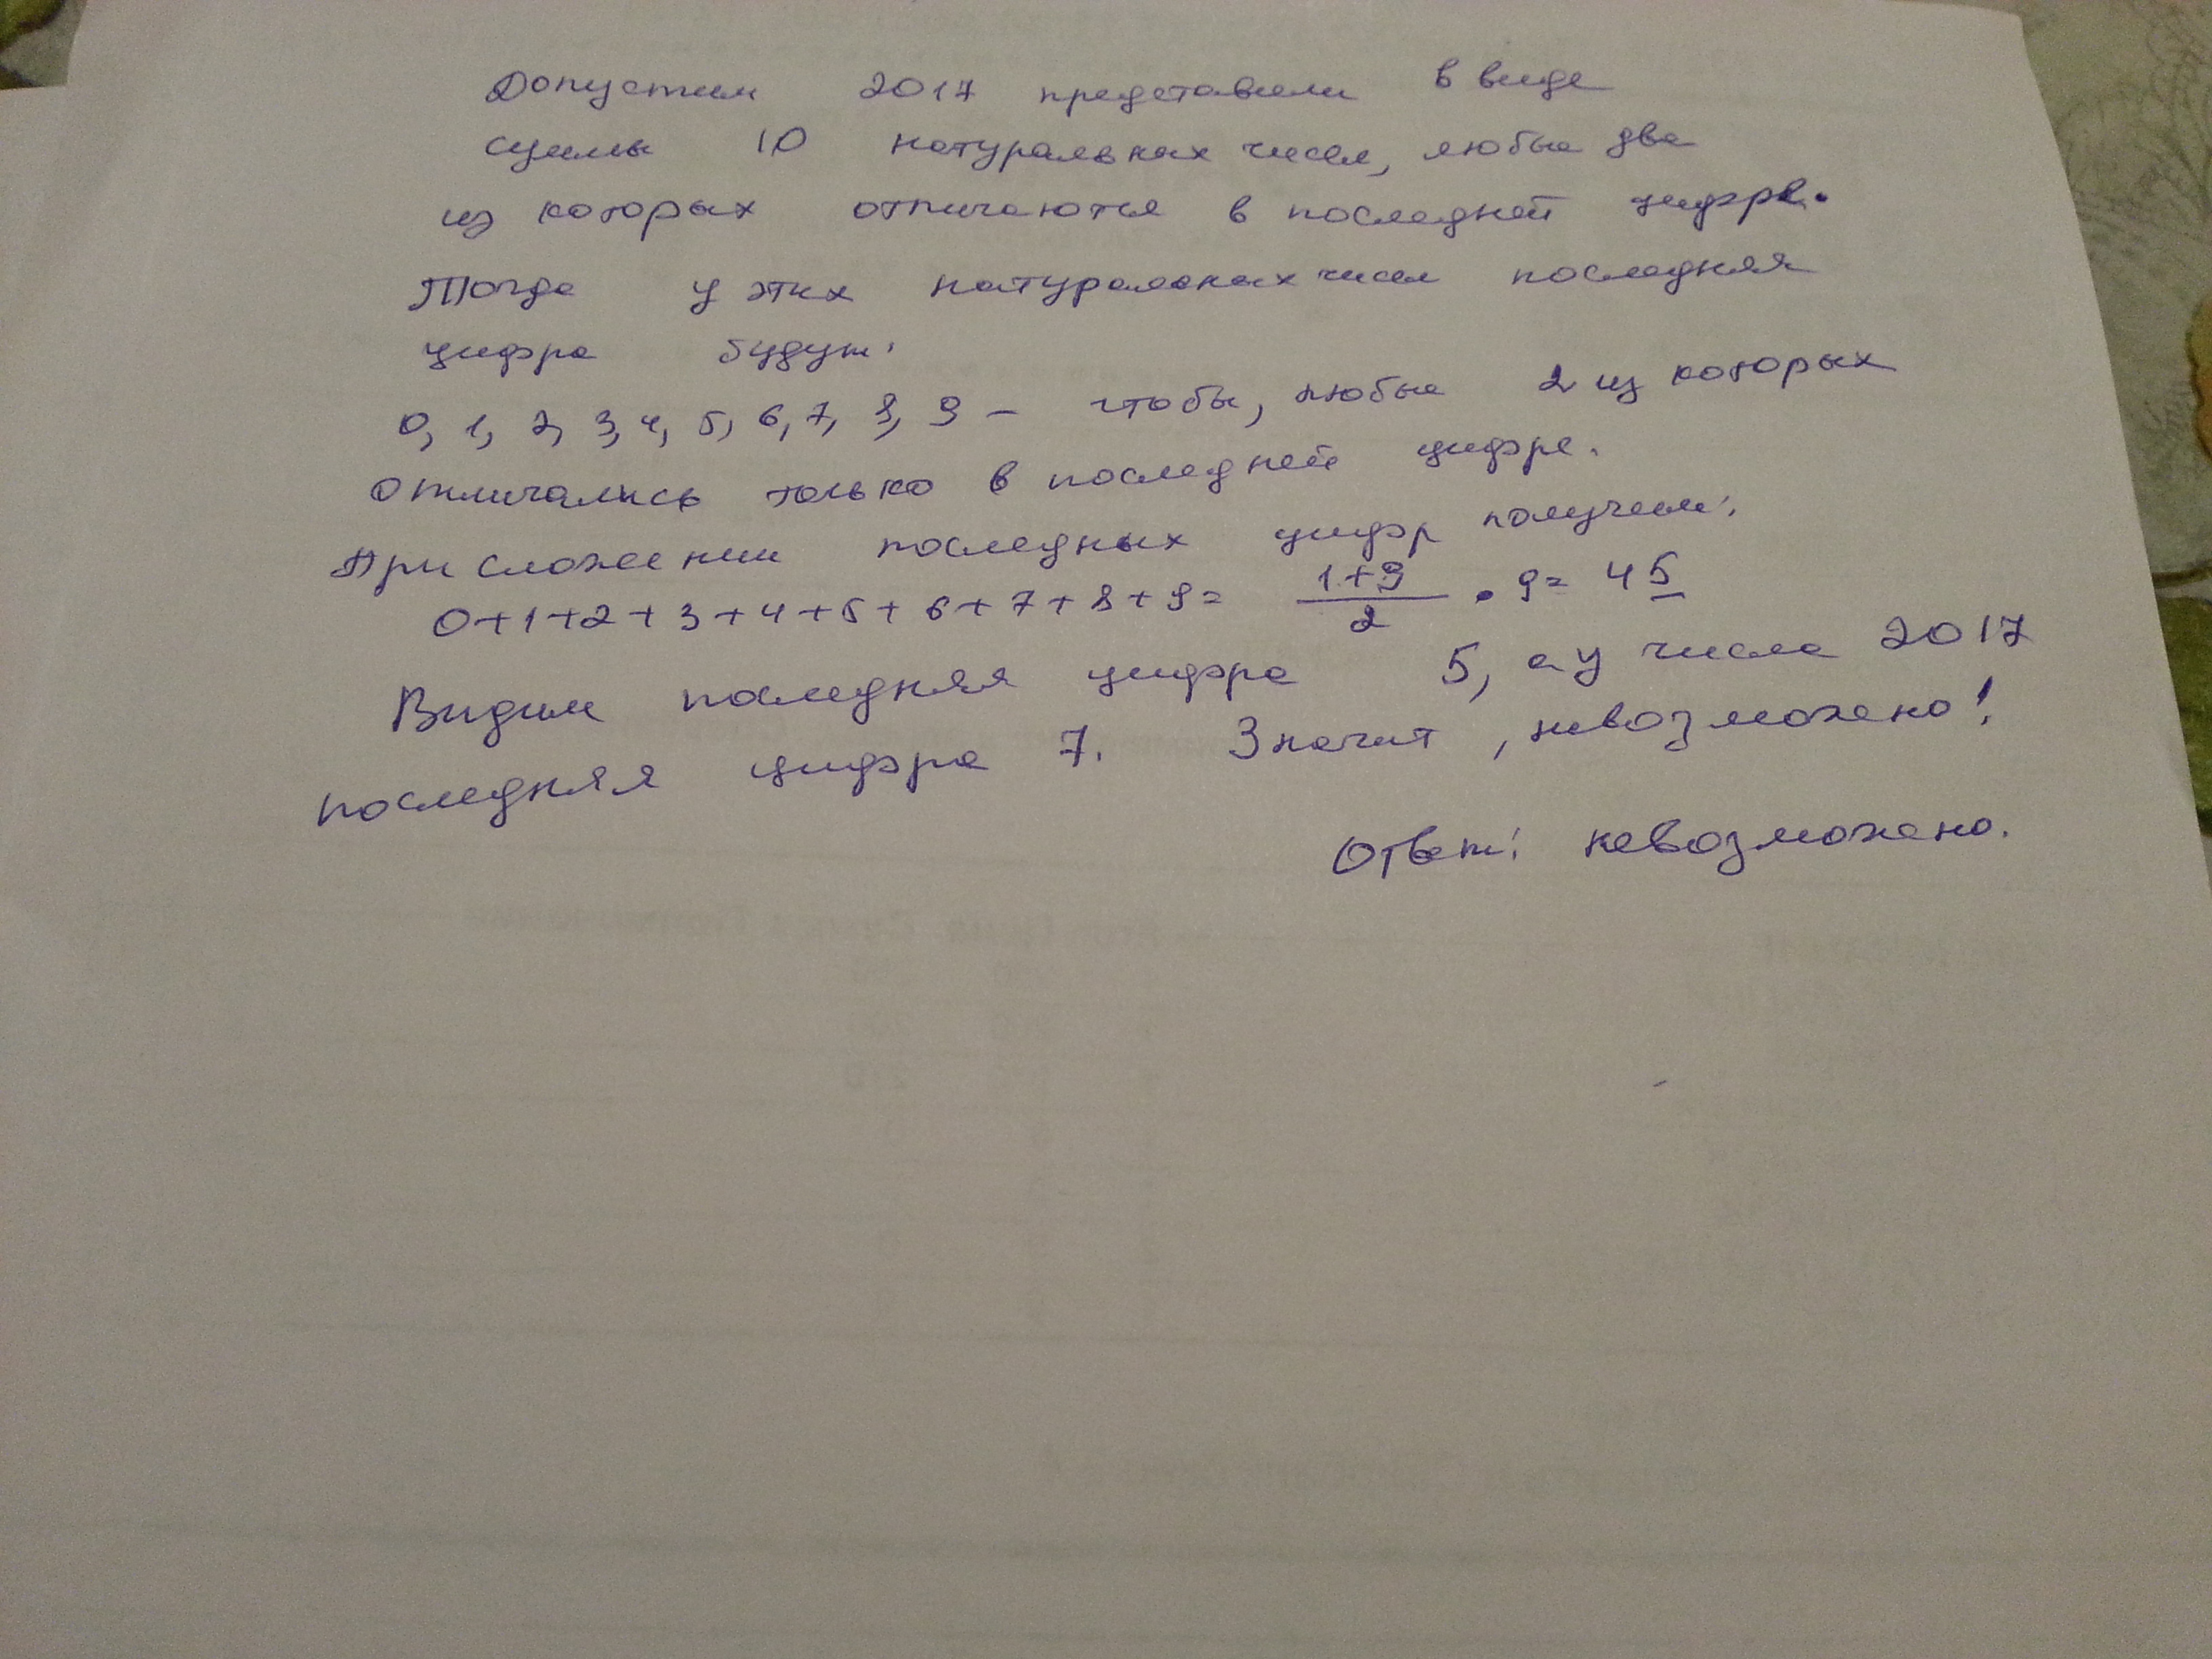 Допустим 2017 представили в виде
суммы 10 натуральных чисел, любые два
из которых отличаются в последней цифре.
Тогда у этих натуральных чисел последняя
цифра будут:
0, 1, 2, 3, 4, 5, 6, 7, 8, 9 – чтобы, любые 2 из которых
отличались только в последней цифре.
При сложении последных цифр получим:
0+1+2+3+4+5+6+7+8+9= (1+9)/2 · 9= 45
Видим последняя цифра 5, а у числа 2017
последняя цифра 7. Значит, невозможно!
Ответ: невозможно.